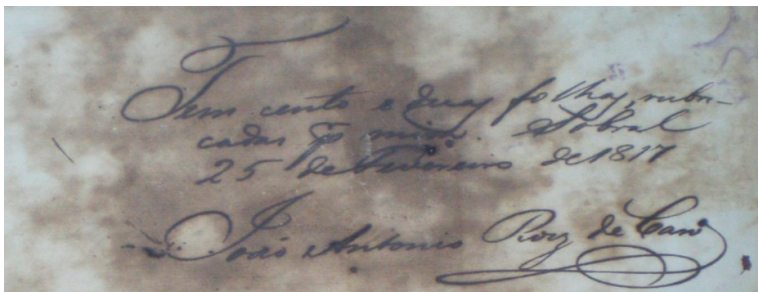 Tem cento e duas folhas, rubri-
cadas p mim. Sobral
25 de Fevereiro de 1817
João Antonio Roiz de Carv